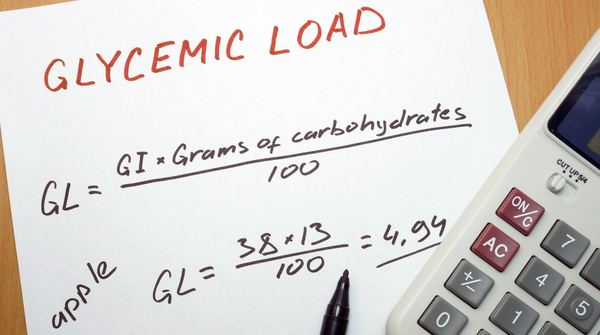 GLYCEMIC LOAD
GL = GI × Grams of carbohydrates
100
apple
GL = 38 × 13 = 4,94
100
CUT UP 5/4
ON/C
AC
7
+/-
4
0
1
5